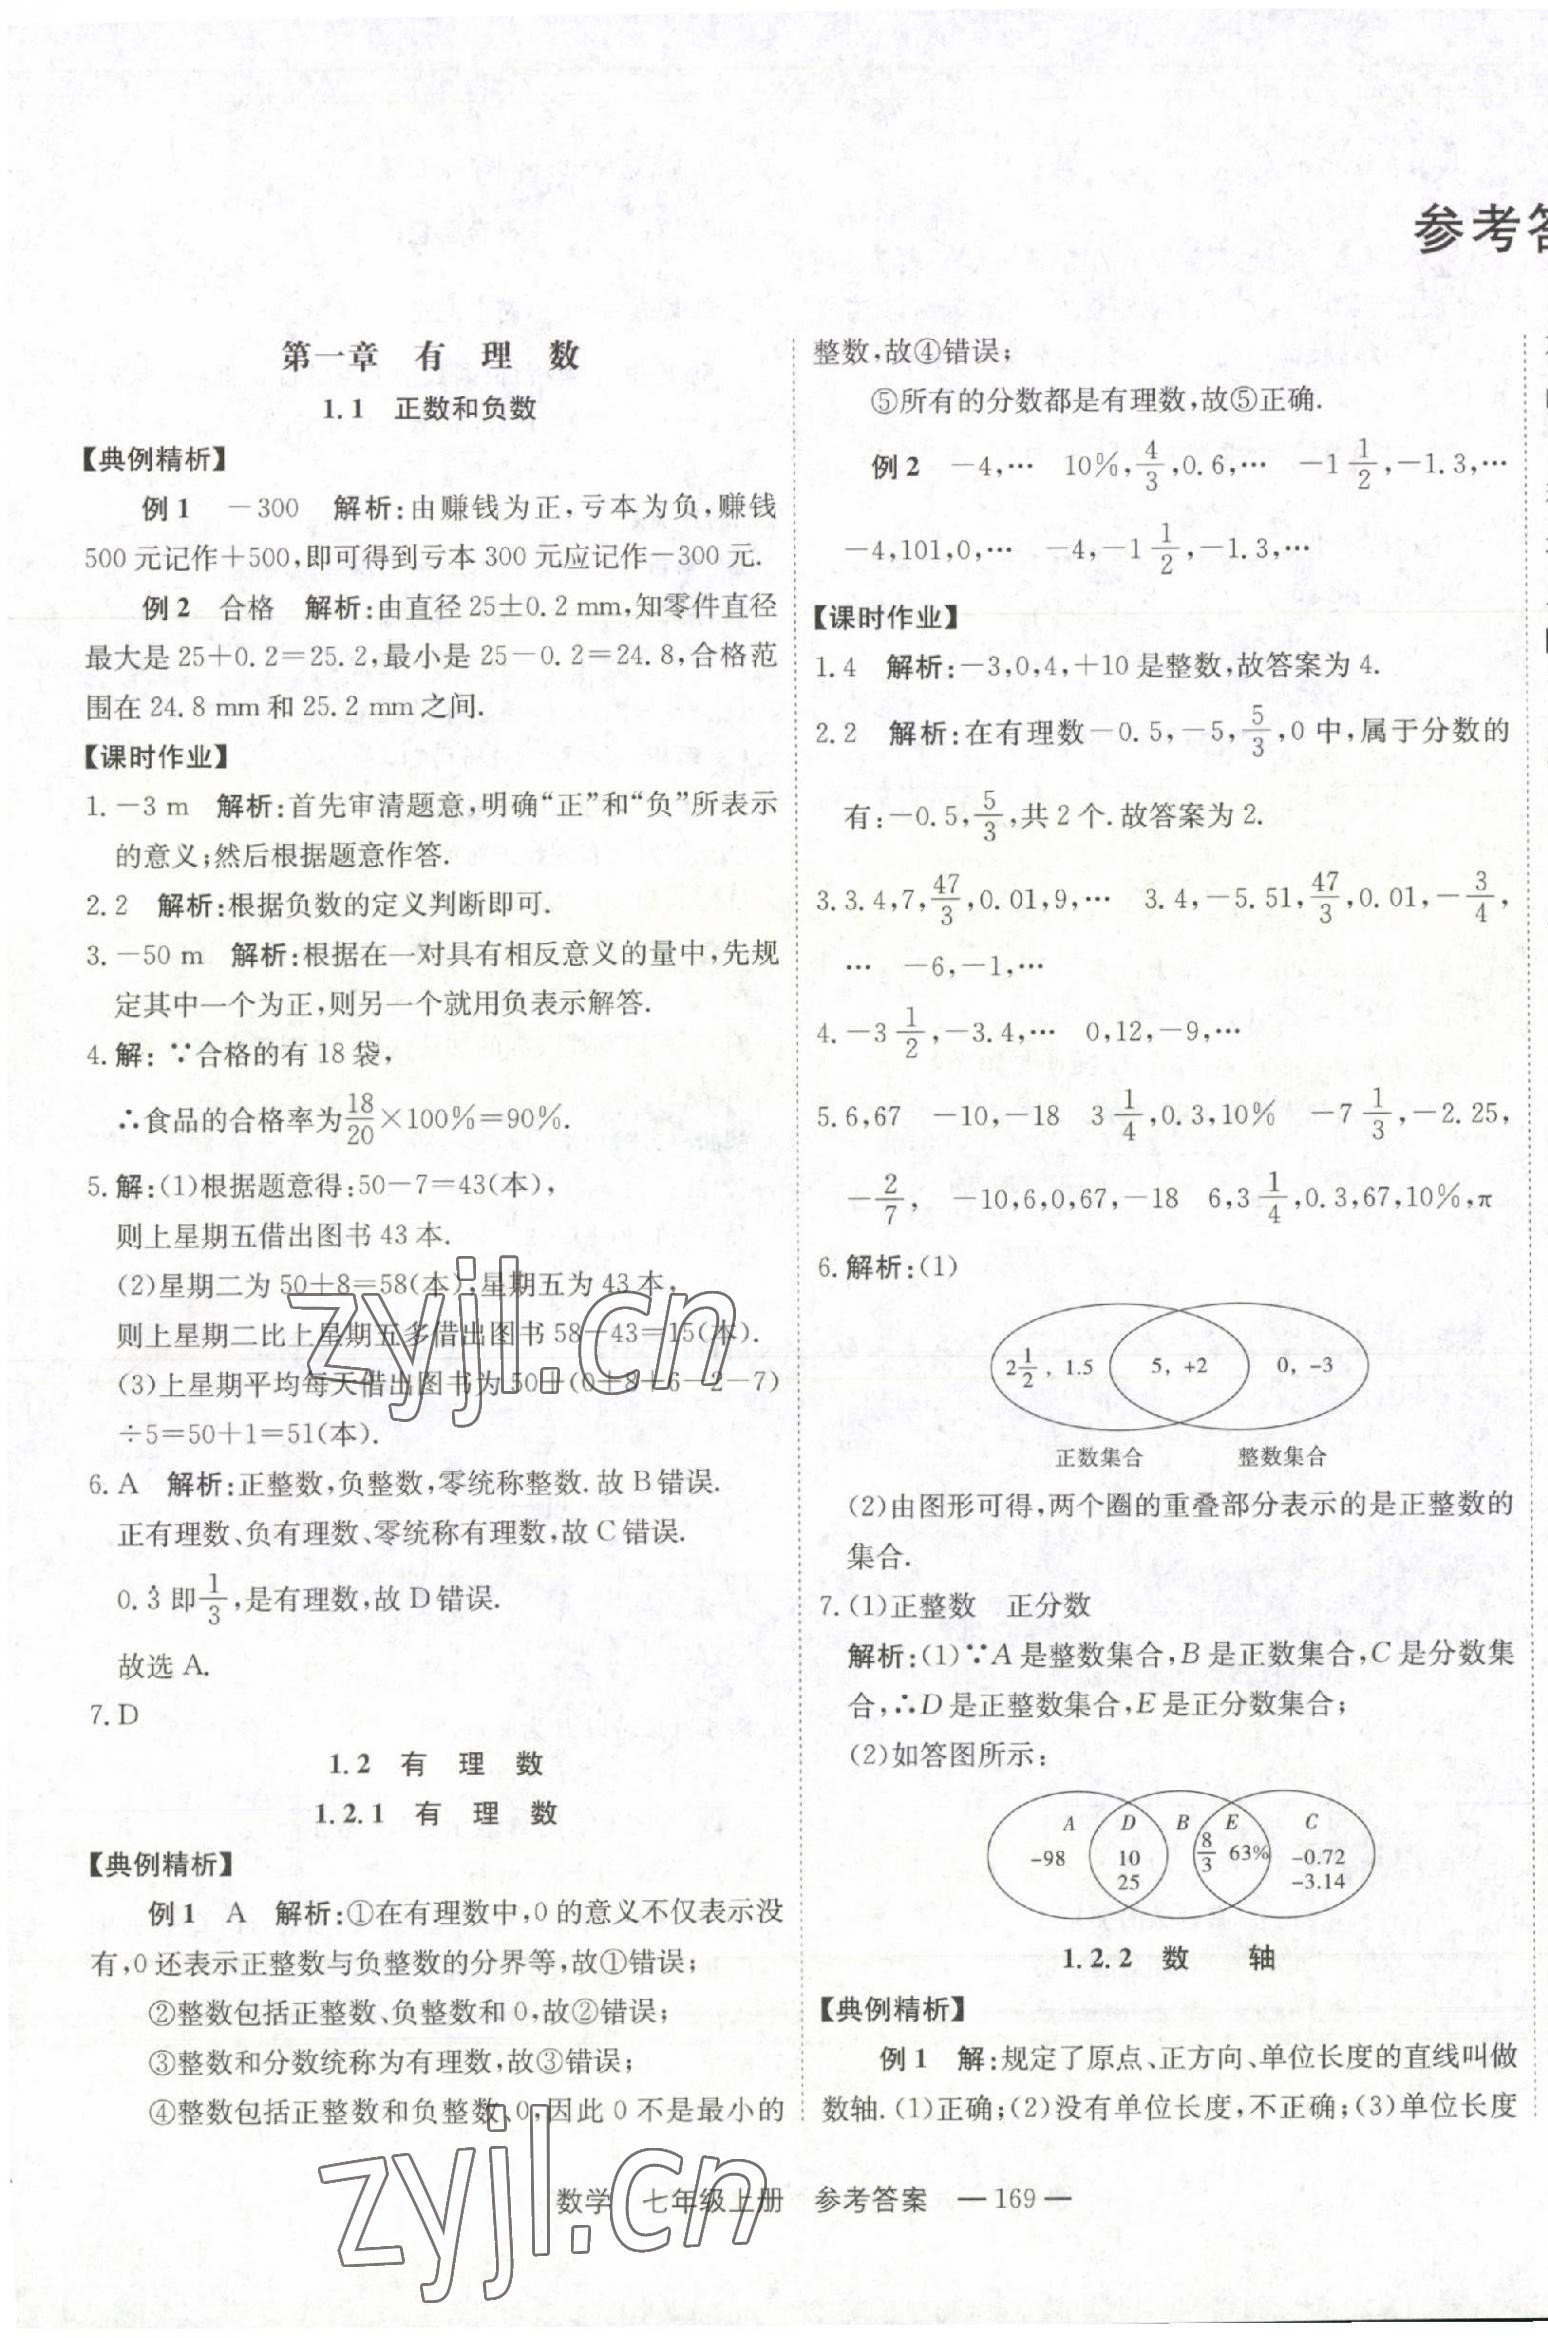 参考答
第一章 有 理 数
1.1 正数和负数
【典例精析】
例1 －300 解析:由赚钱为正,亏本为负,赚钱
500元记作＋500,即可得到亏本300元应记作－300元.
例2 合格 解析:由直径25±0.2 mm,知零件直径
最大是25＋0.2＝25.2,最小是25－0.2＝24.8,合格范
围在24.8 mm和25.2 mm之间.
【课时作业】
1.－3 m 解析:首先审清题意,明确“正”和“负”所表示
的意义;然后根据题意作答.
2.2 解析:根据负数的定义判断即可.
3.－50 m 解析:根据在一对具有相反意义的量中,先规
定其中一个为正,则另一个就用负表示解答.
4.解: ∵合格的有18袋,
∴食品的合格率为18/20×100％＝90％.
5.解:(1)根据题意得:50－7＝43(本),
则上星期五借出图书43本.
(2)星期二为50＋8＝58(本),星期五为43本,
则上星期二比上星期五多借出图书58－43＝15(本).
(3)上星期平均每天借出图书为50＋(0＋8＋6－2－7)
÷5＝50＋1＝51(本).
6.A 解析:正整数,负整数,零统称整数.故B错误.
正有理数、负有理数、零统称有理数,故C错误.
0.3̇即1/3,是有理数,故D错误.
故选A.
7.D
1.2 有 理 数
1.2.1 有 理 数
【典例精析】
例1 A 解析:①在有理数中,0的意义不仅表示没
有,0还表示正整数与负整数的分界等,故①错误;
②整数包括正整数、负整数和0,故②错误;
③整数和分数统称为有理数,故③错误;
④整数包括正整数和负整数、0,因此0不是最小的
整数,故④错误;
⑤所有的分数都是有理数,故⑤正确.
例2 －4,… 10％,4/3,0.6,… －1 1/2,－1.3,…
－4,101,0,… －4,－1 1/2,－1.3,…
【课时作业】
1.4 解析:－3,0,4,＋10是整数,故答案为4.
2.2 解析:在有理数－0.5,－5,5/3,0中,属于分数的
有:－0.5,5/3,共2个.故答案为2.
3.3.4,7,47/3,0.01,9,… 3.4,－5.51,47/3,0.01,－3/4,
… －6,－1,…
4.－3 1/2,－3.4,… 0,12,－9,…
5.6,67 －10,－18 3 1/4,0.3,10％ －7 1/3,－2.25,
－2/7, －10,6,0,67,－18 6,3 1/4,0.3,67,10％,π
6.解析:(1)
2 1/2, 1.5 5, +2 0, -3
正数集合 整数集合
(2)由图形可得,两个圈的重叠部分表示的是正整数的
集合.
7.(1)正整数 正分数
解析:(1)∵A是整数集合,B是正数集合,C是分数集
合,∴D是正整数集合,E是正分数集合;
(2)如答图所示:
A D B E C
-98 10 8/3 63% -0.72
25 -3.14
1.2.2 数 轴
【典例精析】
例1 解:规定了原点、正方向、单位长度的直线叫做
数轴.(1)正确;(2)没有单位长度,不正确;(3)单位长度
数学 七年级上册 参考答案 — 169 —
zyjl.cn
zyjl.cn